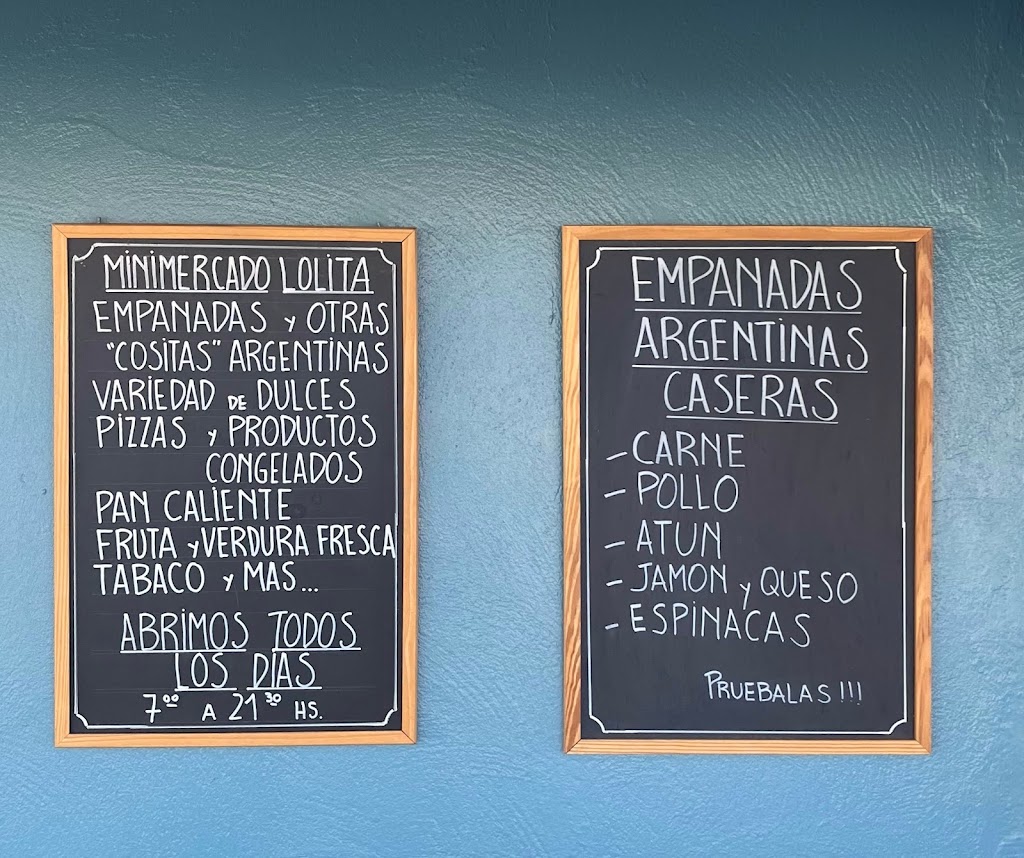 MINIMERCADO LOLITA
EMPANADAS y OTRAS
"COSITAS" ARGENTINAS
VARIEDAD DE DULCES
PIZZAS y PRODUCTOS
CONGELADOS
PAN CALIENTE
FRUTA y VERDURA FRESCA
TABACO y MAS...
ABRIMOS TODOS
LOS DÍAS
7⁰⁰ A 21³⁰ HS.
EMPANADAS
ARGENTINAS
CASERAS
- CARNE
- POLLO
- ATUN
- JAMON y QUESO
- ESPINACAS
PRUEBALAS!!!